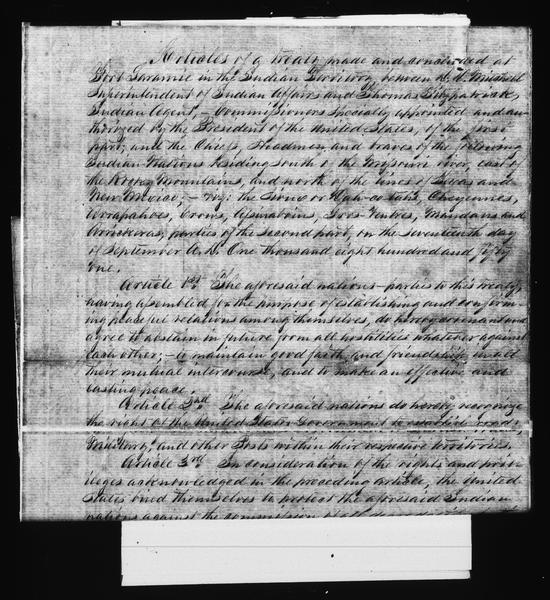 Articles of a treaty made and concluded at
Fort Laramie in the Indian Territory, between D. D. Mitchell
Superintendent of Indian Affairs and Thomas Fitzpatrick,
Indian Agent, Commissioners specially appointed and au-
thorized by the President of the United States, of the first
part, and the Chiefs, Headmen and braves of the following
Indian Nations residing south of the Missouri river, east of
the Rocky Mountains, and north of the lines of Texas and
New Mexico; – viz: the Sioux or Dah-co-tahs, Cheyennes,
Arrapahoes, Crows, Assinaboins, Gros-Ventres, Mandans and
Arrickaras, parties of the second part, on the Seventeenth day
of September A.D. One thousand eight hundred and fifty
one.
Article 1st The aforesaid nations – parties to this treaty,
having assembled for the purpose of establishing and confirm-
ing peaceful relations among themselves, do hereby covenant and
agree to abstain in future from all hostilities whatever against
each other; – to maintain good faith and friendship in all
their mutual intercourse, and to make an effective and
lasting peace.
Article 2nd. The aforesaid nations do hereby recognize
the right of the United States Government to establish roads,
and other Posts within their respective territories.
Article 3rd. In consideration of the rights and priv-
ileges acknowledged in the preceding article, the United
States bind themselves to protect the aforesaid Indian
nations against the commission of all